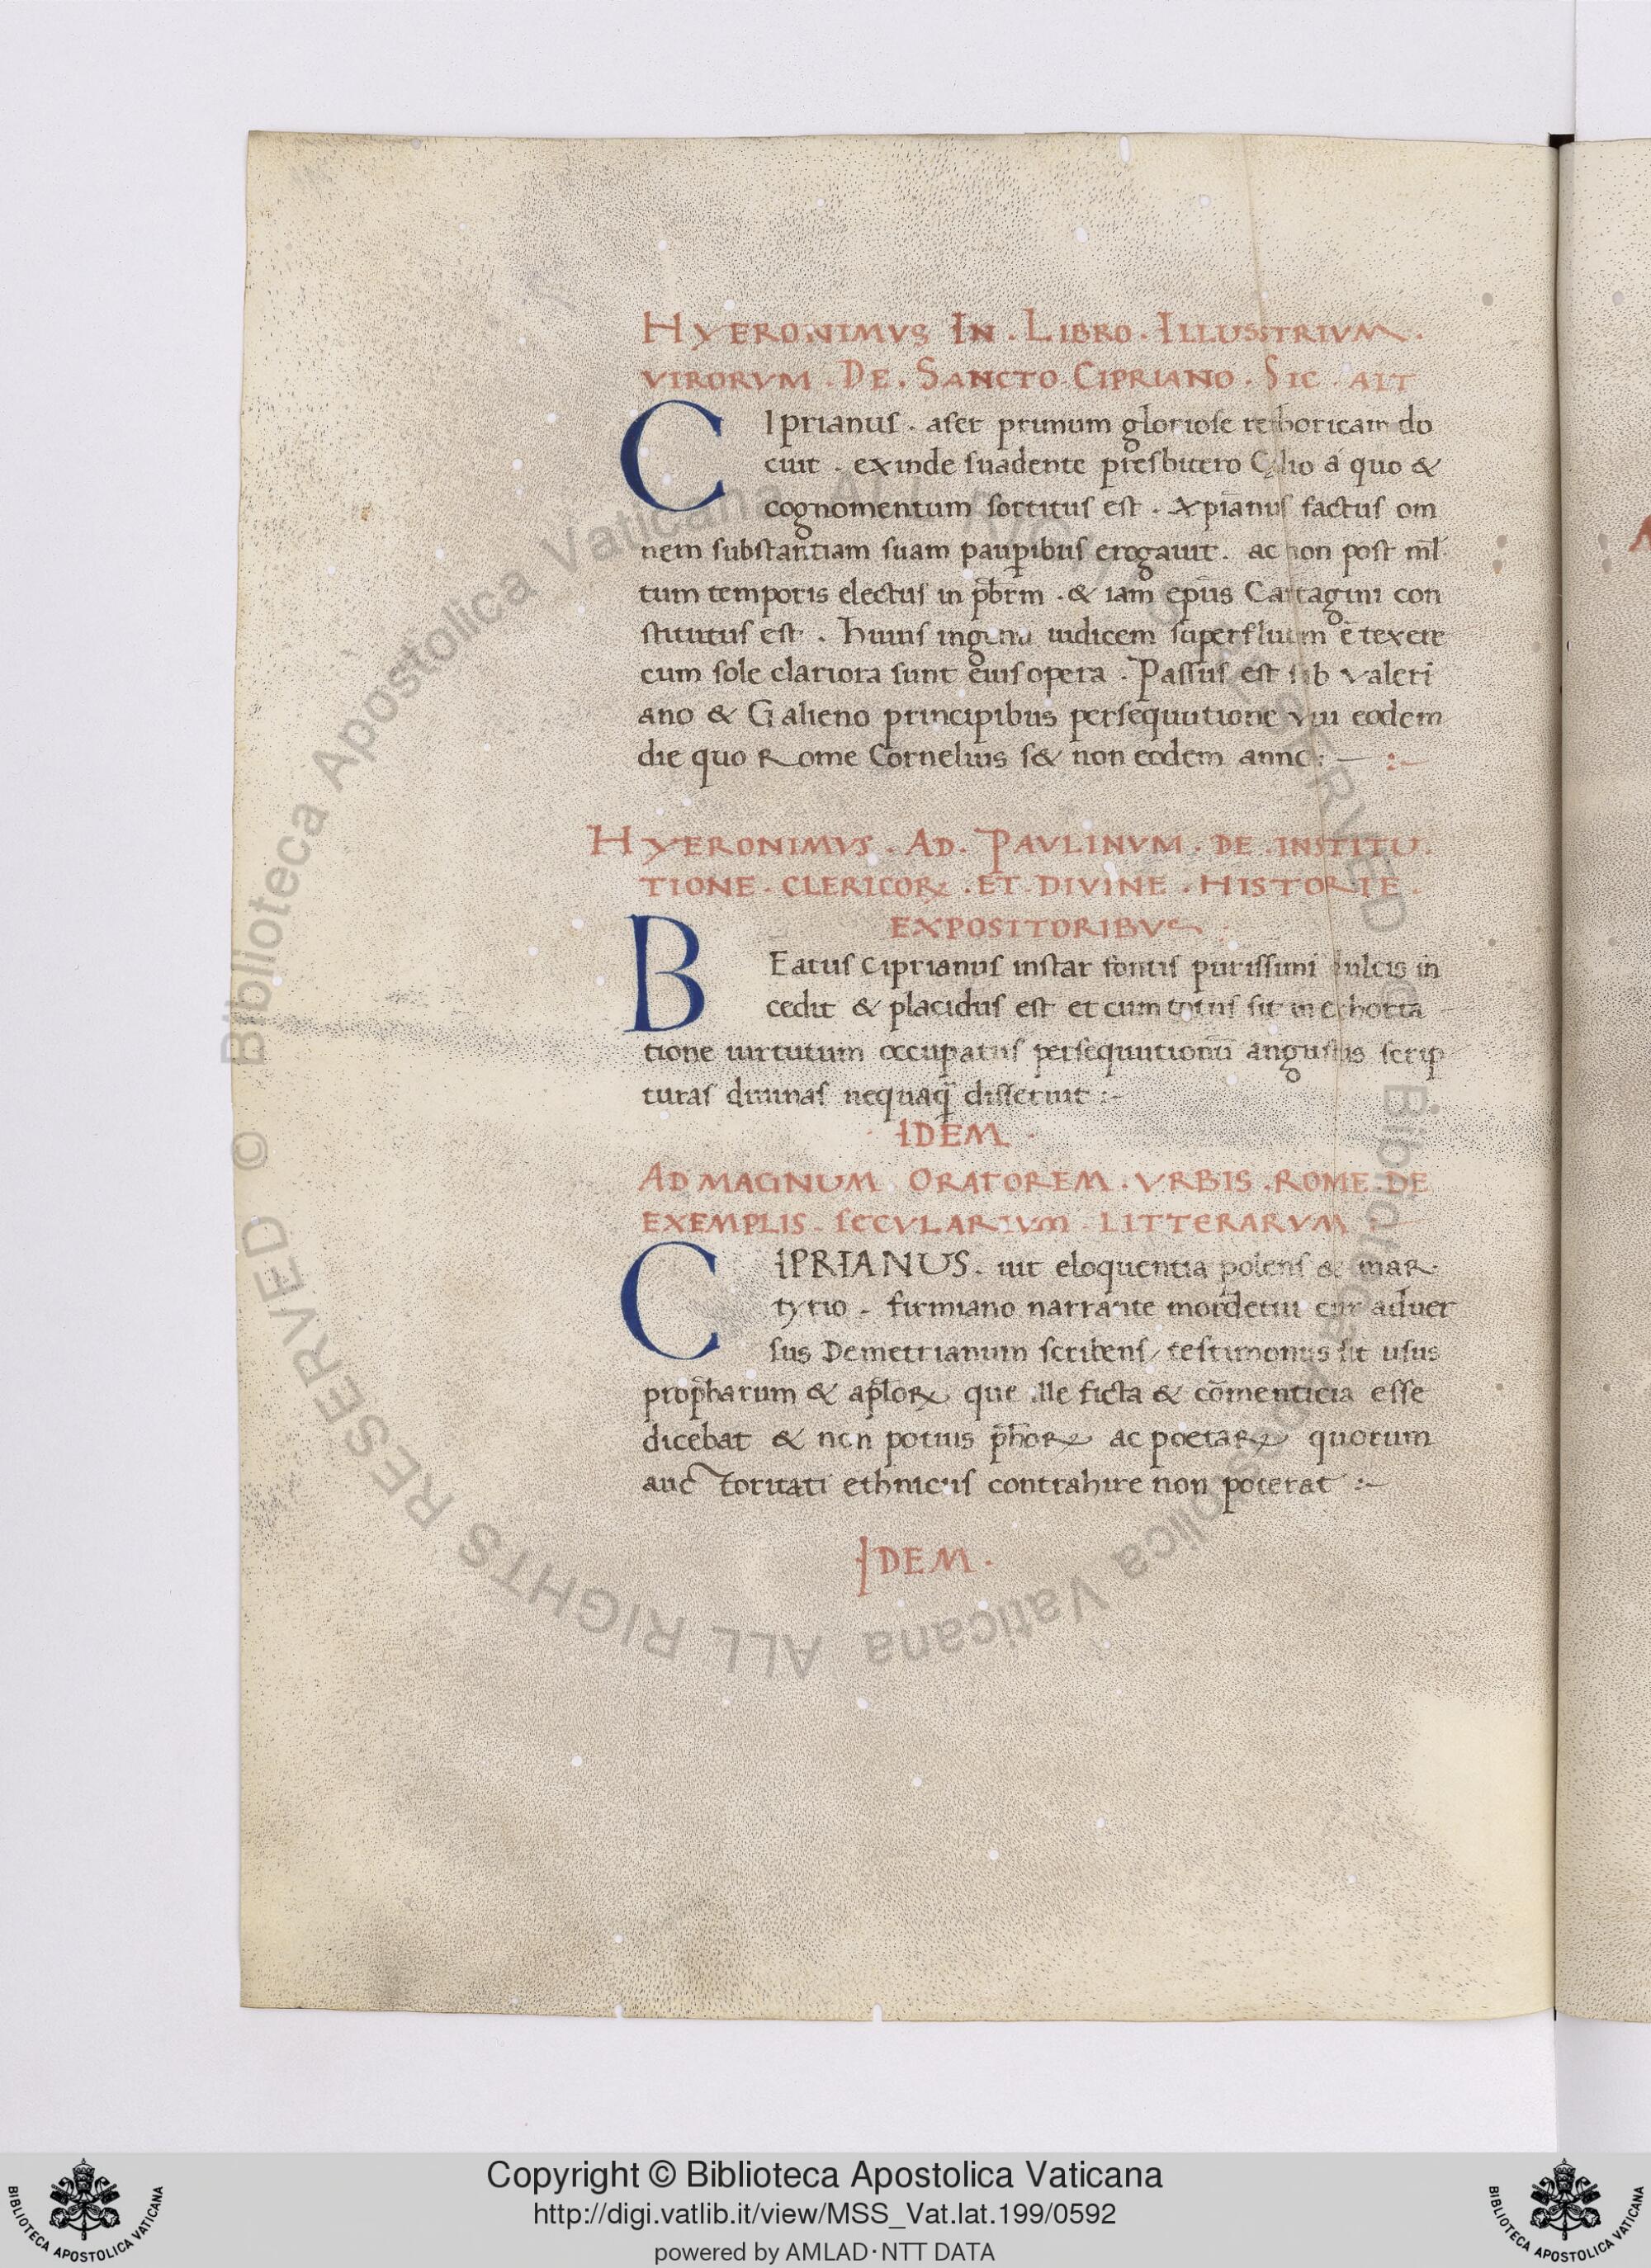 HYERONIMVS IN . LIBRO . ILLUSSTRIVM .
VIRORVM . DE . SANCTO CIPRIANO . SIC . AIT
CIprianus . afer primum gloriose rethoricam do
cuit . exinde suadente presbitero Cęlio a quo &
cognomentum sortitus est . Xp̄ianus factus om
nem substantiam suam paup̱ibus erogauit . ac non post ml̄
tum temporis electus in pb̄rm . & iam ep̄us Cartagini con
stitutus est . huius ingenii iudicem superfluum ē texere
cum sole clariora sunt eius opera . Passus est sub valeri
ano & Galieno principibus persequutione viii eodem
die quo Rome Cornelius s& non eodem anno :—
HYERONIMVS . AD . PAVLINVM . DE . INSTITU .
TIONE . CLERICORꝝ . ET . DIVINE . HISTORIE .
EXPOSITORIBVS
BEatus ciprianus instar fontis purissimi dulcis in
cedit & placidus est et cum totus sit in exhorta
tione uirtutum occupatus persequutionū angustiis scrip
turas diuinas nequaq̄ disseruit :-
. IDEM .
AD MAGNUM ORATOREM . VRBIS . ROME . DE
EXEMPLIS . SECVLARIUM . LITTERARVM :
CIPRIANUS . uir eloquentia polens & mar
tyrio . firmiano narrante mordetur cur aduer
sus Demetrianum scribens / testimoniis sit usus
prop̄harum & ap̄lorꝝ que ille ficta & cōmenticia esse
dicebat & non potius p̄horꝝ ac poetarꝝ quorum
auctoritati ethnicus contrahire non poterat :-
IDEM .
Copyright © Biblioteca Apostolica Vaticana
http://digi.vatlib.it/view/MSS_Vat.lat.199/0592
powered by AMLAD·NTT DATA
BIBLIOTECA APOSTOLICA VATICANA
BIBLIOTECA APOSTOLICA VATICANA
© Biblioteca Apostolica Vaticana ALL RIGHTS RESERVED © Biblioteca Apostolica Vaticana ALL RIGHTS RESERVED